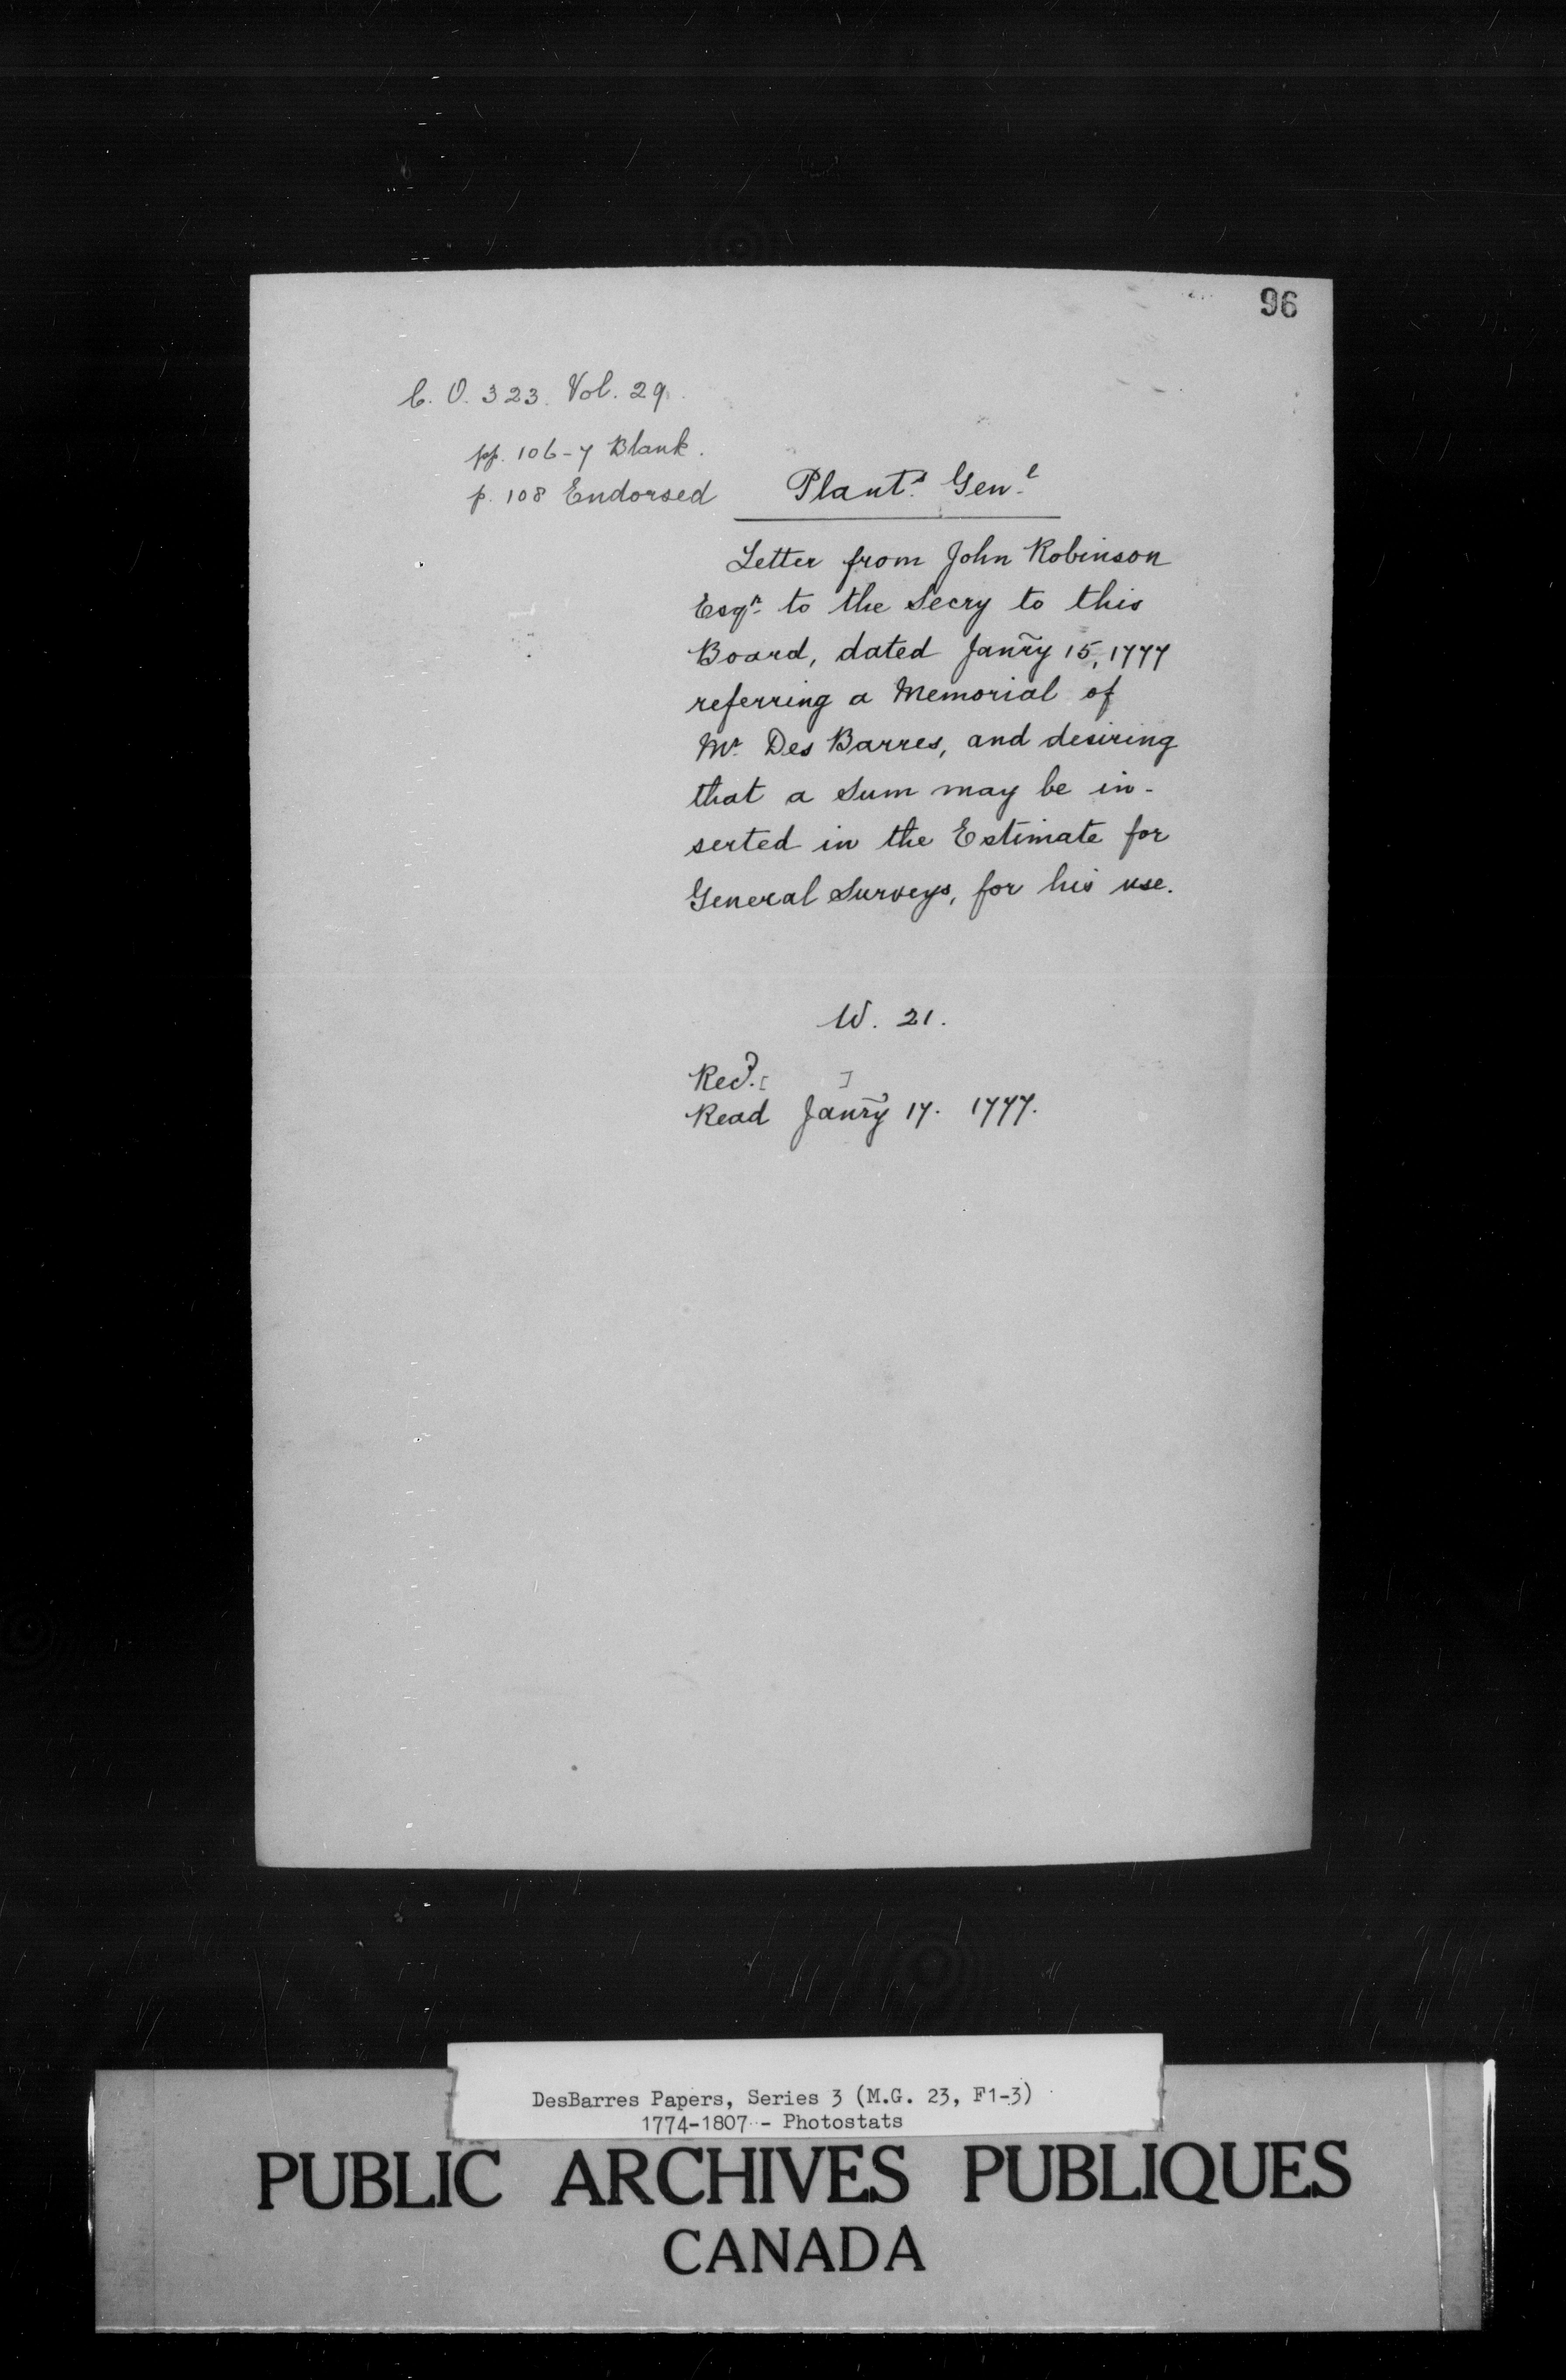 96
C. O. 323. Vol. 29.
pp. 106-7 Blank.
p. 108 Endorsed
Plant.s Gen.l
Letter from John Robinson
Esqr. to the Secry to this
Board, dated Janr̃y 15, 1777
referring a Memorial of
Mr. Des Barres, and desiring
that a Sum may be in-
serted in the Estimate for
General Surveys, for his use.
W. 21.
Recd. [ ]
Read Janr̃y 17. 1777.
DesBarres Papers, Series 3 (M.G. 23, F1-3)
1774-1807 - Photostats
PUBLIC ARCHIVES PUBLIQUES
CANADA